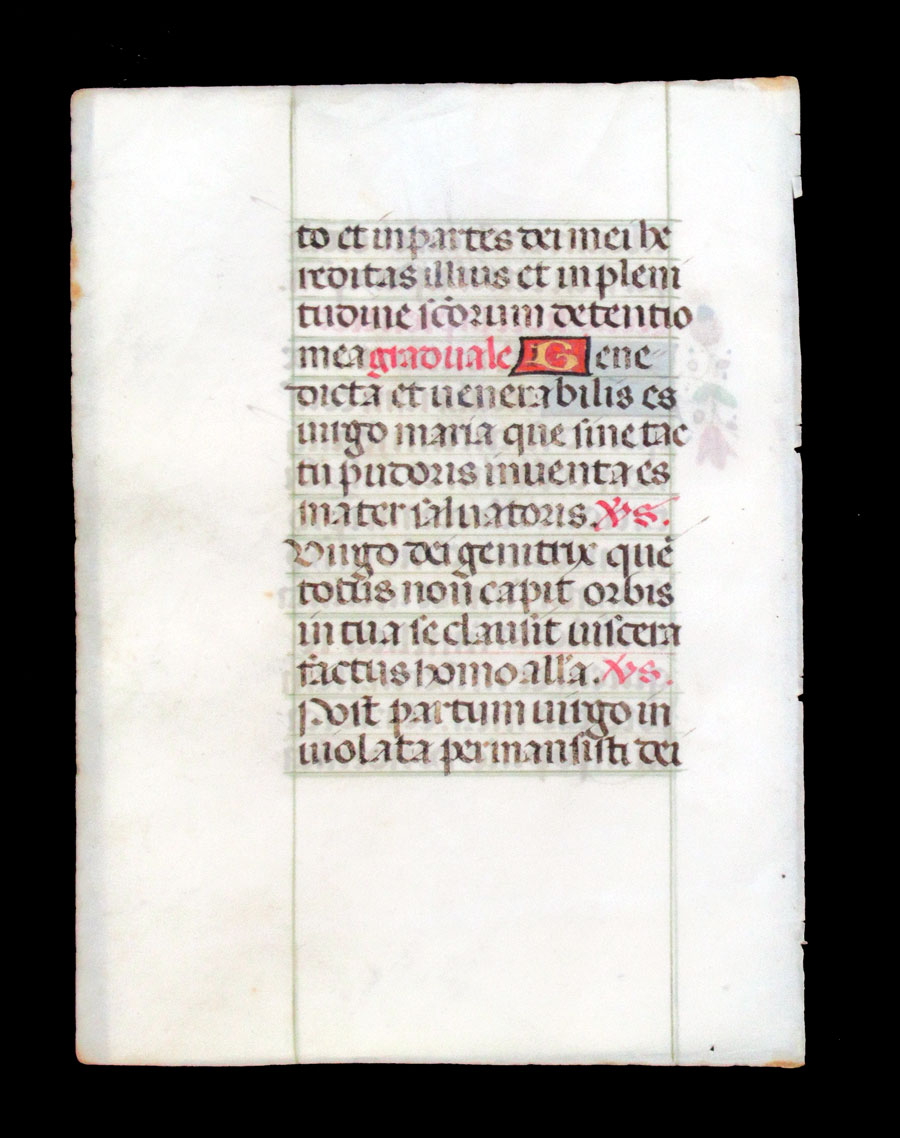 to et in partes dei mei he
reditas illius et in pleni
tudine sc̄orum detentio
mea graduale Bene
dicta et uenerabilis es
uirgo maria que sine tac
tu pudoris inuenta es
mater saluatoris. v̄s.
Uirgo dei genitrix quē
totus non capit orbis
in tua se clausit uiscera
factus homo all̄a. v̄s.
Post partum uirgo in
uiolata permansisti dei